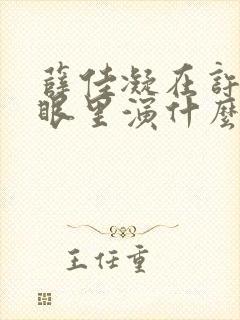 薛佳凝在許
眼里演什麼
王任重